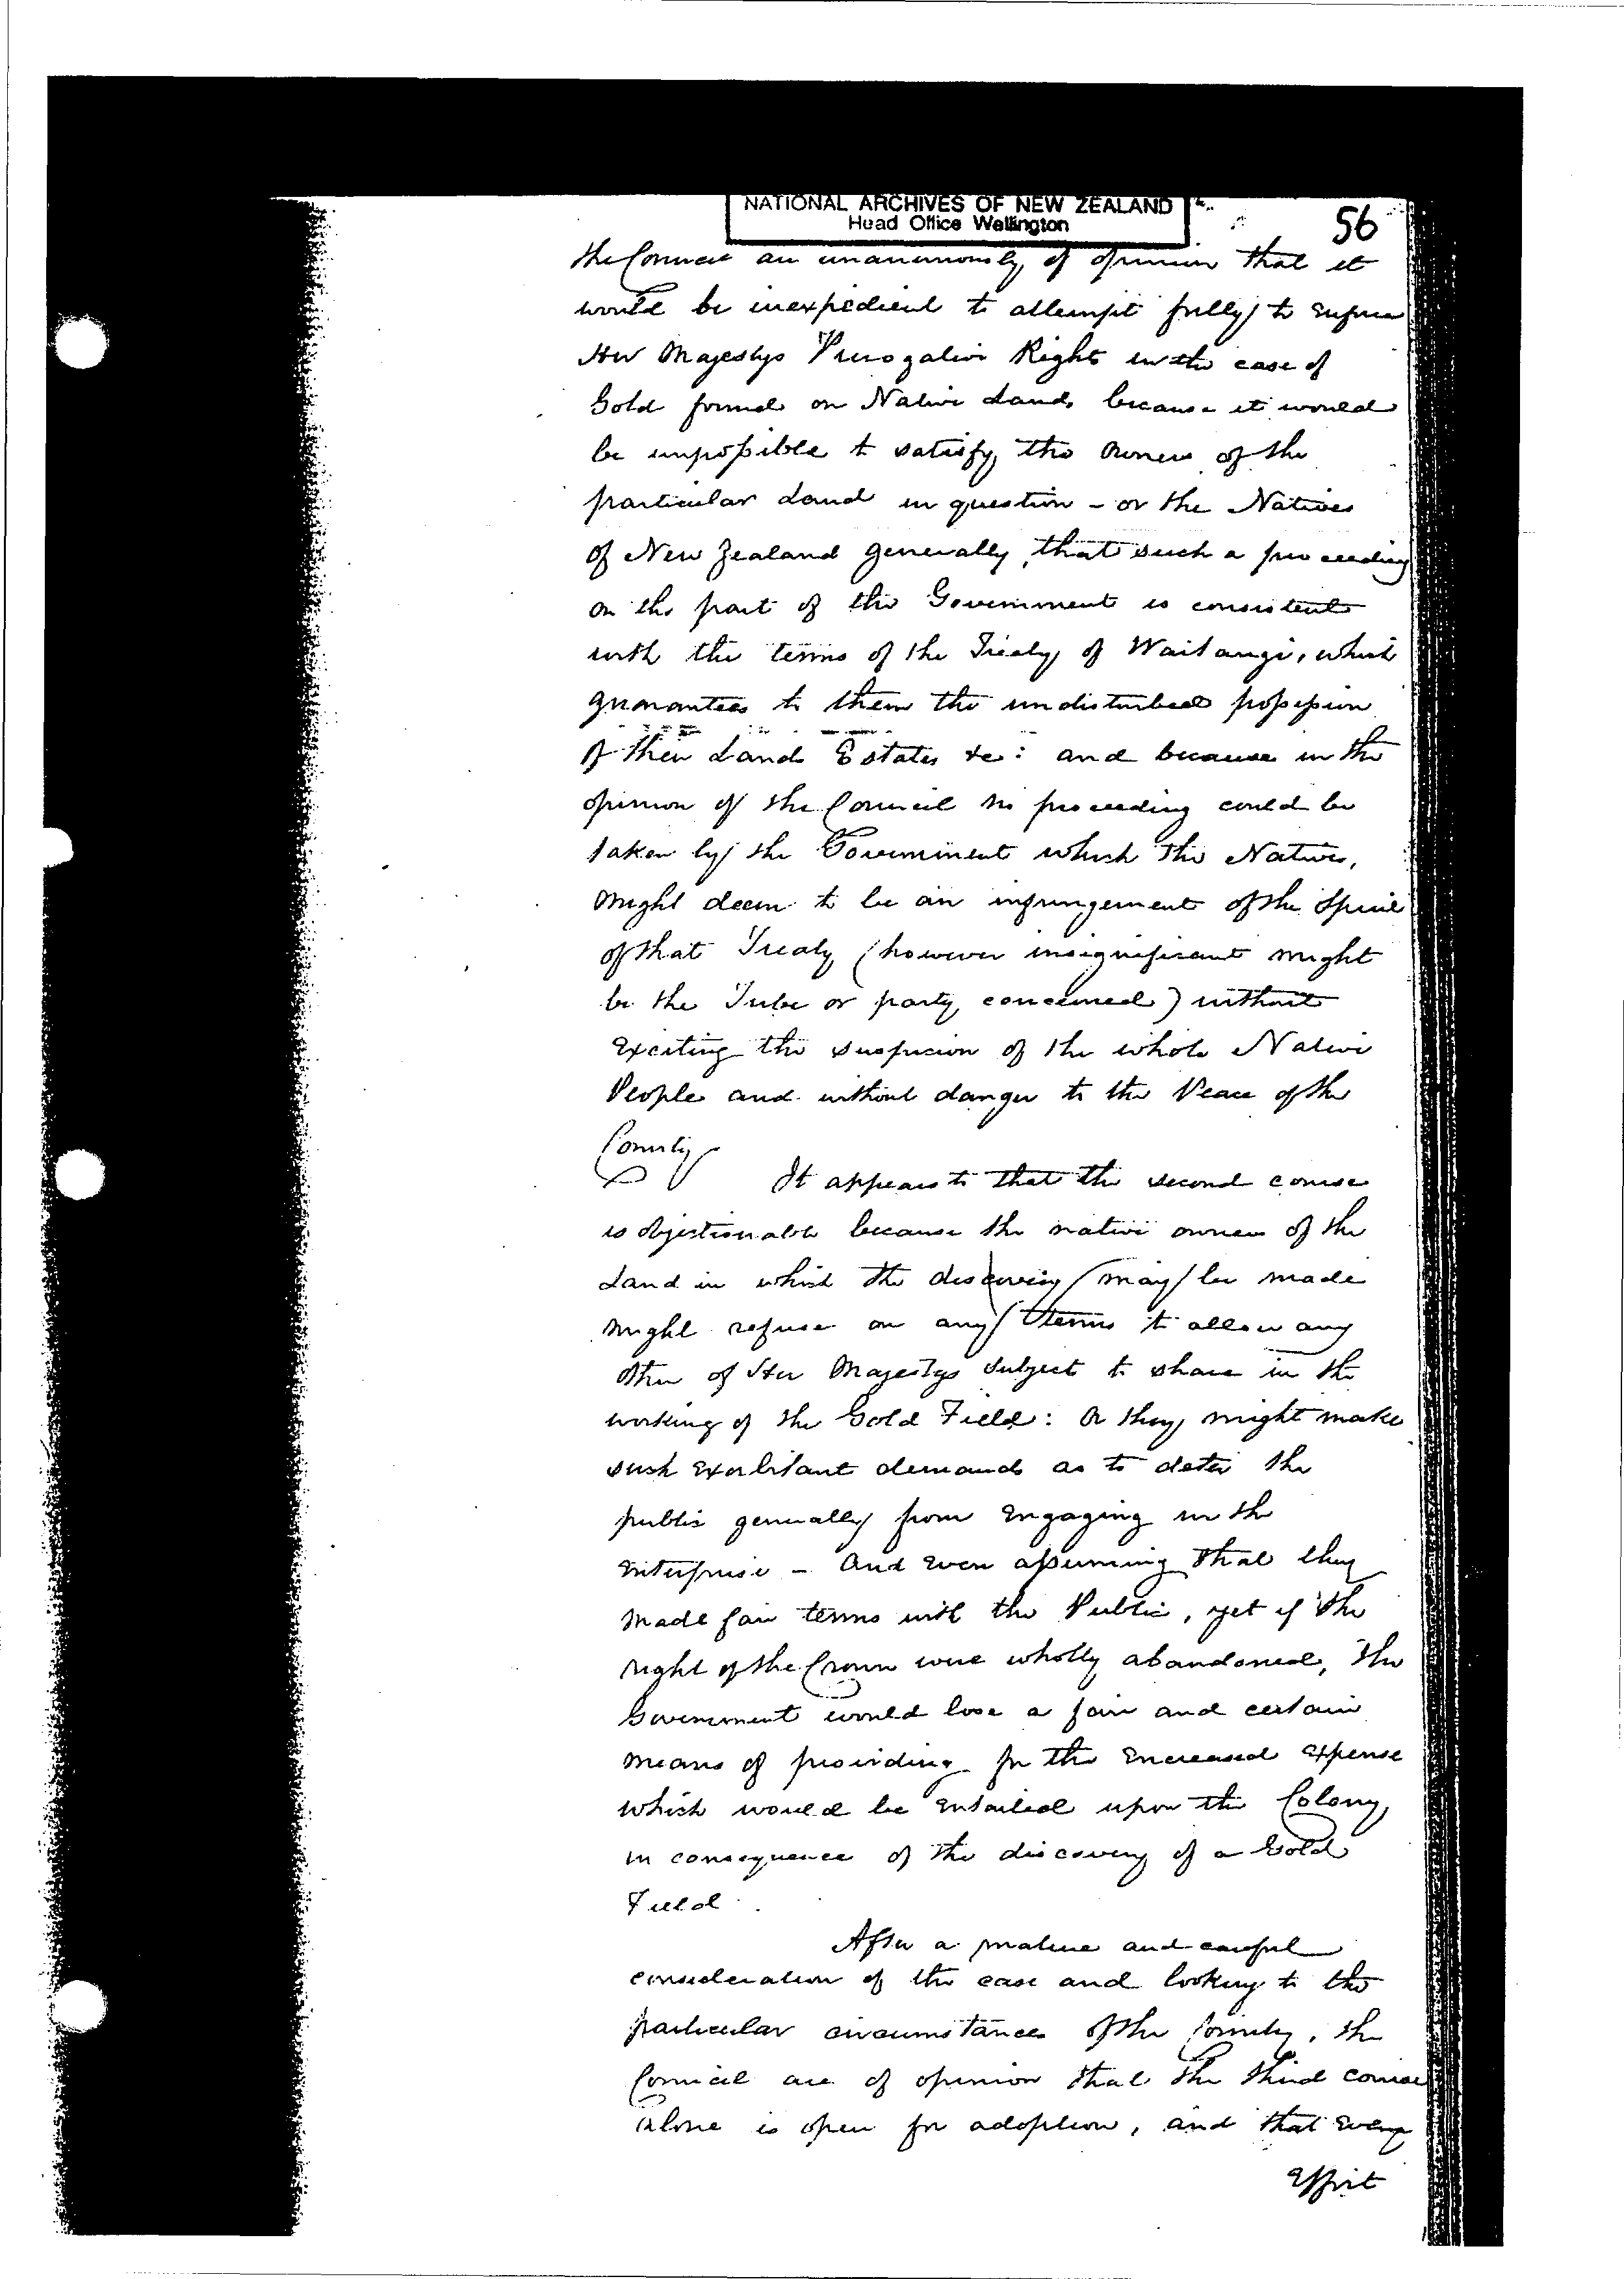 NATIONAL ARCHIVES OF NEW ZEALAND
Head Office Wellington
56
the Council are unanimously of opinion that it
would be inexpedient to attempt fully to enforce
Her Majestys Prerogative Right in the case of
Gold found on Native Lands because it would
be impossible to satisfy the Owners of the
particular Land in question - or the Natives
of New Zealand generally, that such a proceeding
on the part of the Government is consistent
with the terms of the Treaty of Waitangi, which
guarantees to them the undisturbed possession
of their Lands Estates &c: and because in the
opinion of the Council no proceeding could be
taken by the Government which the Natives,
might deem to be an infringement of the Spirit
of that Treaty (however insignificant might
be the Tribe or party concerned) without
exciting the suspicion of the whole Native
People and without danger to the Peace of the
Country
It appears to that the second course
is objectionable because the native owners of the
Land in which the discovery may be made
might refuse on any terms to allow any
other of Her Majestys Subject to share in the
working of the Gold Field: Or they might make
such exorbitant demands as to deter the
public generally from engaging in the
enterprise - And even assuming that they
made fair terms with the Public, yet if the
right of the Crown were wholly abandoned, the
Government would lose a fair and certain
means of providing for the increased expense
which would be entailed upon the Colony,
in consequence of the discovery of a Gold
Field.
After a mature and careful
consideration of the case and looking to the
particular circumstances of the Country, the
Council are of opinion that the third course
alone is open for adoption, and that every
Effort